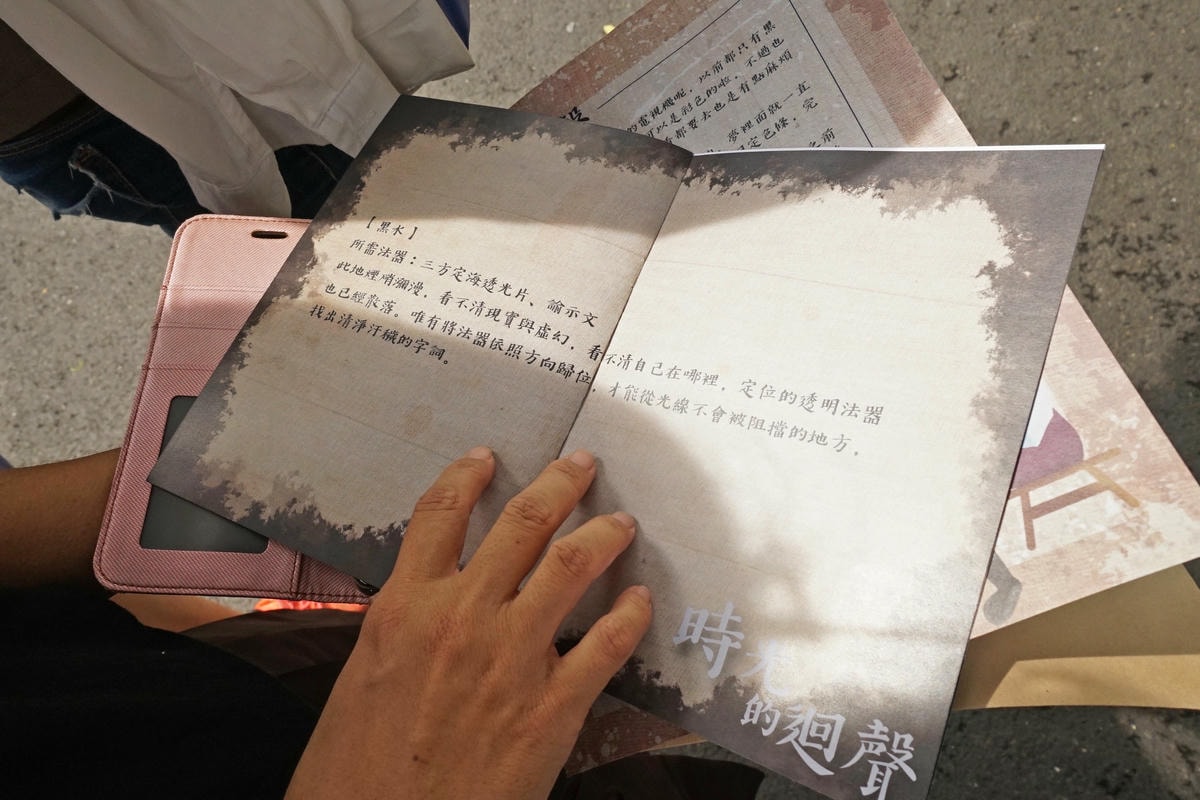 的電視機呢，以前都只有黑
可以是彩色的啦，不過也
都要去也是有點麻煩
夢裡面就一直
定色條，完
前
【黑水】
所需法器：三方定海透光片、諭示文
此地煙硝瀰漫，看不清現實與虛幻，看不清自己在哪裡，定位的透明法器
也已經散落。唯有將法器依照方向歸位，才能從光線不會被阻擋的地方，
找出清淨汙穢的字詞。
時光
的迴聲